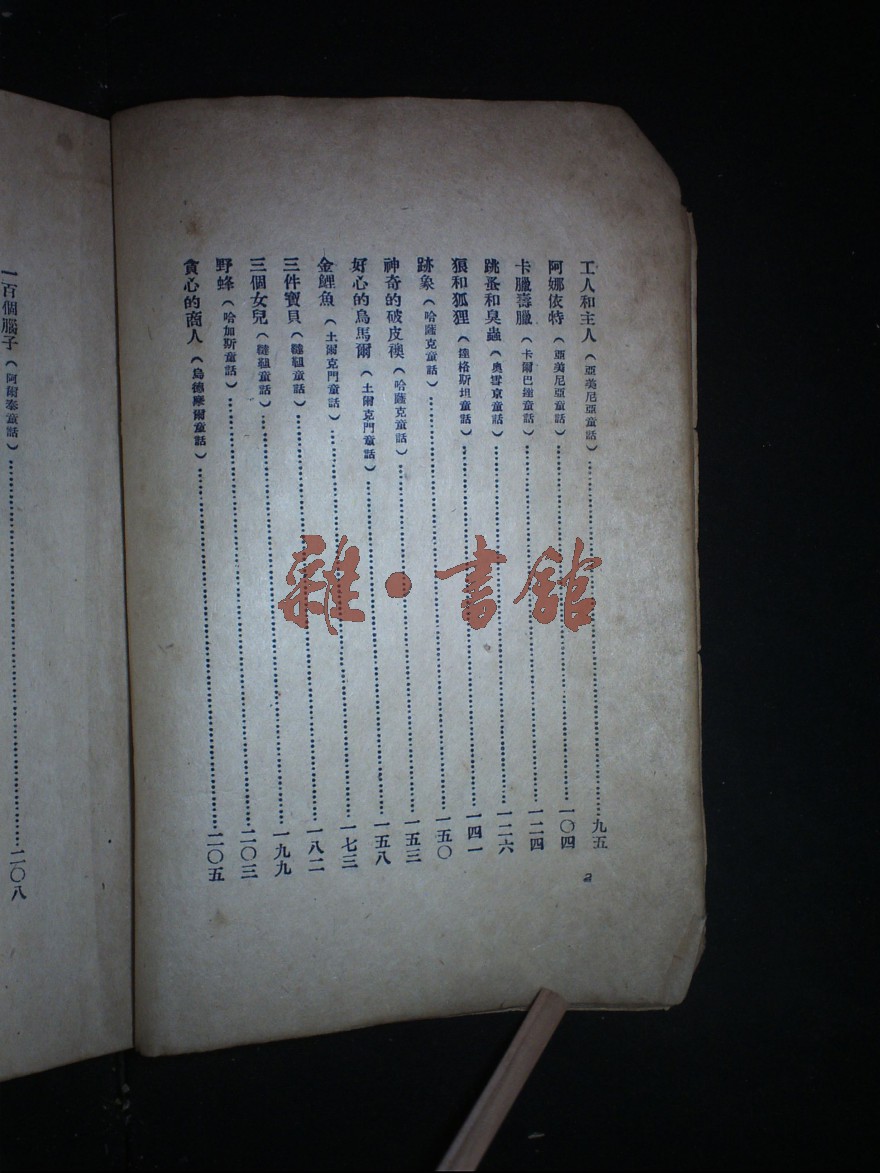 工人和主人(亞美尼亞童話)……九五
阿娜依特(亞美尼亞童話)……一〇四
卡臘壽臘(卡爾巴達童話)……一二四
跳蚤和臭蟲(奧雪京童話)……一二六
狼和狐狸(達格斯坦童話)……一四一
跡象(哈薩克童話)……一五〇
神奇的破皮襖(哈薩克童話)……一五三
好心的烏馬爾(土爾克門童話)……一五八
金鯉魚(土爾克門童話)……一七三
三件寶貝(韃靼童話)……一八二
三個女兒(韃靼童話)……一九九
野蜂(哈加斯童話)……二〇三
貪心的商人(烏德摩爾童話)……二〇五
一百個腦子(阿爾泰童話)……二〇八
a
雜·書館